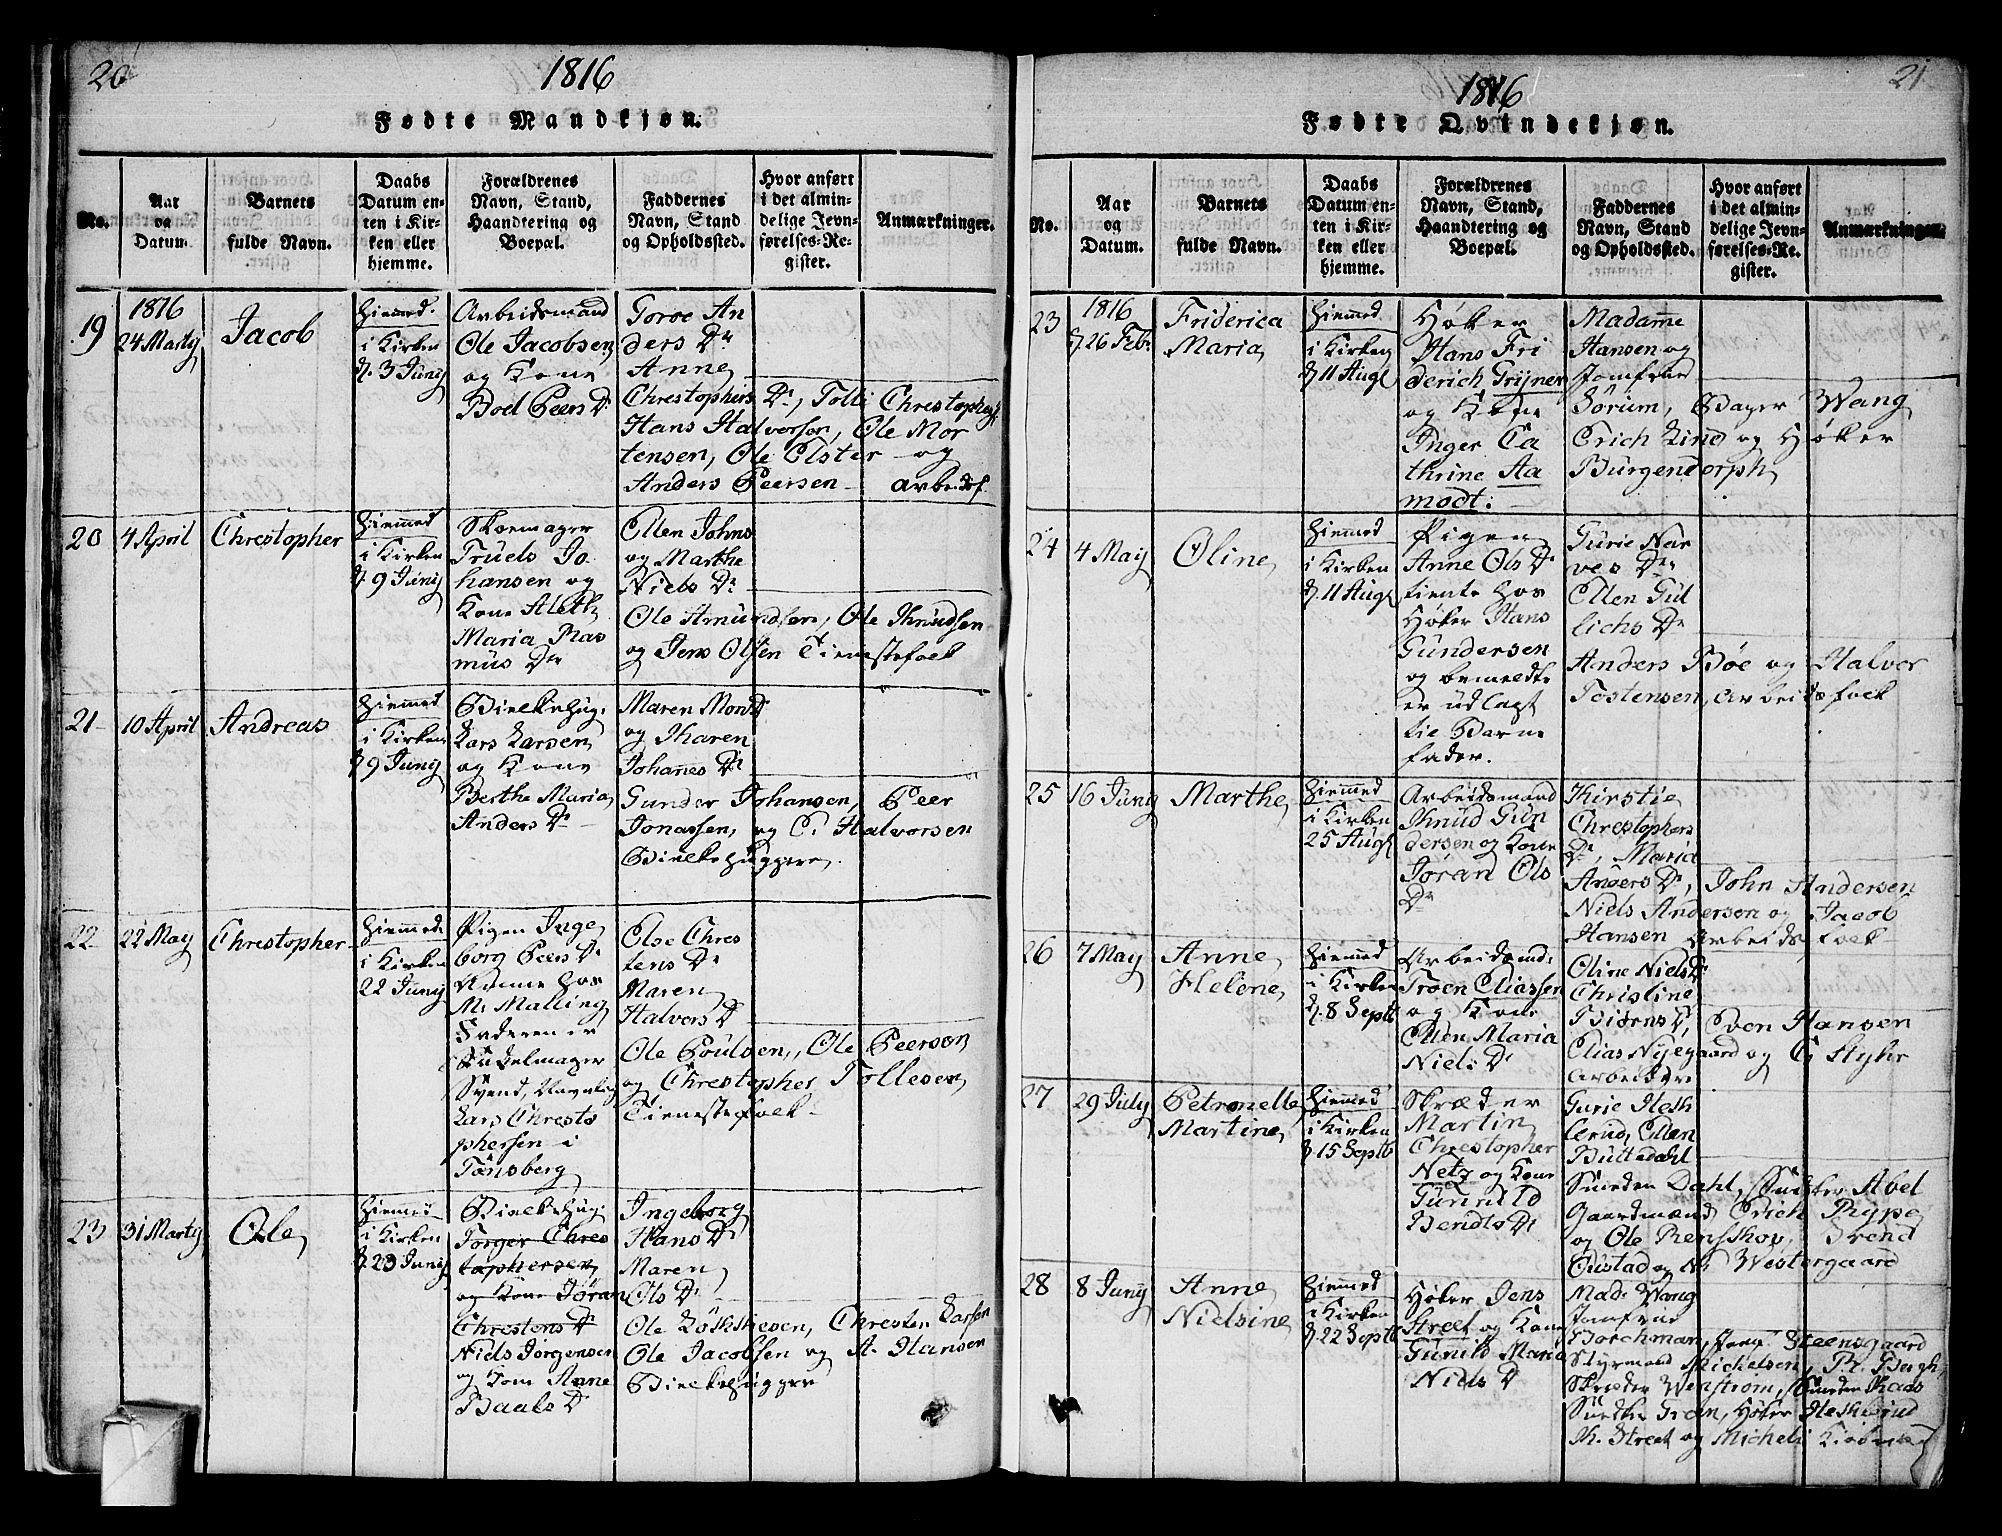 20
1816
Fødte Mandkjøn.
No.
Aar
og
Datum.
Barnets
fulde Navn.
Daabs
Datum en-
ten i Kir-
ken eller
hjemme.
Forældrenes
Navn, Stand,
Haandtering og
Boepæl.
Faddernes
Navn, Stand
og Opholdssted.
Hvor anført
i det almin-
delige Jevn-
førelses-Re-
gister.
Anmærkninger.
19
1816
24 Marty
Jacob
Hiemmed.
i Kirken
d. 3 Juny
Arbeidsmand
Ole Jacobsen
og Kone
Boel Peers Dr
Goroe An
ders Dr
Anne
Chrestophers Dr, Tolli Chrestophers
Hans Halvorsen, Ole Mor
tensen, Ole Elster og
Anders Peersen arbeidsf.
20
4 April
Chrestopher
Hiemmed
i Kirken
d 9 Juny
Skoemager
Truels Jo-
hansen og
Kone Aleth
Maria Ras
mus Dr
Ellen Johns
og Marthe
Niels Dr
Ole Amundsen, Ole Knudsen
og Jens Olsen Tienestefolk
21
10 April
Andreas
Hiemmed
i Kirken
d 9 Juny
Bielkehug.
Lars Larsen
og Kone
Berthe Maria
Anders Dr
Maren Mons Dr
og Karen
Johannes Dr
Gunder Johansen, Peer
Jonassen, og C. Halvorsen
Bielkehuggere.
22
22 May
Chrestopher
Hiemmed
i Kirken
22 Juny
Pigen Inge
borg Peers Dr
Amme hos
M. Malling
Faderen er
Sadelmager
Svend, Navnlig
Lars Chresto
phersen i
Tønsberg
Else Chres
tens Dr
Maren
Halvors Dr
Ole Poulsen, Ole Peersen
og Chrestopher Tollesen
Tienestefolk
23
31 Marty
Ole
Hiemmed
i Kirken
d. 23 Juny
Bielkehug.
Torger Chres
tophersen
og Kone Jøran
Chrestens Dr
Niels Jørgensen
og Kone Anne
Baals Dr
Ingeborg
Hans Dr
Maren
Ols Dr
Ole Løkskeven, Chresten Larsen
Ole Jacobsen og A. Hansen
Bielkehuggere
21
1816
Fødte Qvindekjøn.
No.
Aar
og
Datum.
Barnets
fulde Navn.
Daabs
Datum en-
ten i Kir-
ken eller
hjemme.
Forældrenes
Navn, Stand,
Haandtering og
Boepæl.
Faddernes
Navn, Stand
og Opholdssted.
Hvor anført
i det almin-
delige Jevn-
førelses-Re-
gister.
Anmærkninger.
23
1816
d 26 Feb.
Friderica
Maria
Hiemmed
i Kirken
d. 11 Augt
Høker
Hans Fri
derich Trijner
og Kone
Inger Ca
thrine Aa
modt.
Madamme
Hansen og
Jomfrue
Sørum, Bager Wang
Erich Lind og Høker
Burgendorph
24
4 May
Oline
Hiemmed
i Kirken
d. 11 Augt
Pigen
Anne Ols Dr
tiente hos
Høker Hans
Gundersen
og bemeldte
er udlagt
til Barne
fader.
Gurie Nar
ves Dr
Ellen Gul
lichs Dr
Anders Bøe og Halvor
Tostensen, Arbeidsfolk
25
16 Juny
Marthe
Hiemmed
i Kirken
25 Augt
Arbeidsmand
Knud Gun
dersen og Kone
Jøran Ols
Dr
Kirstie
Chrestophers
Dr, Maria
Anders Dr, John Andersen
Niels Andersen og Jacob
Hansen Arbeidsfolk
26
7 May
Anne
Helene
Hiemmed
i Kirken
d. 8 Septb
Arbeidsmd.
Troen Eliassen
og Kone
Ellen Maria
Niels Dr
Oline Niels Dr
Christine
Biørns Dr, Even Hansen
Elias Nyegaard og C. Styhr
Arbeidere
27
29 July
Petronelle
Martine
Hiemmed
i Kirken
d 15 Septb
Skræder
Martin
Chrestopher
Netz og Kone
Gunild
Bendts Dr
Gurie Hesk
lerud, Ellen
Buttedahl
Smeden Dahl, Abel
Gaardmænd Erich Rype
og Ole Rensskov, Svend
Custad og N. Westergaard
28
8 Juny
Anne
Nielsine
Hiemmed
i Kirken
d 22 Septb
Høker Jens
Street og Kone
Gunild Maria
Niels Dr
Mad. Wang
Jomfrue
Borchman, Jomf. Steensgaard
Styrmand Michelsen, R. Bergh
Skræder Wenstrøm, Smeden Kaas
Smeden Gran, Høker Heskerud
K. Street og Micheli